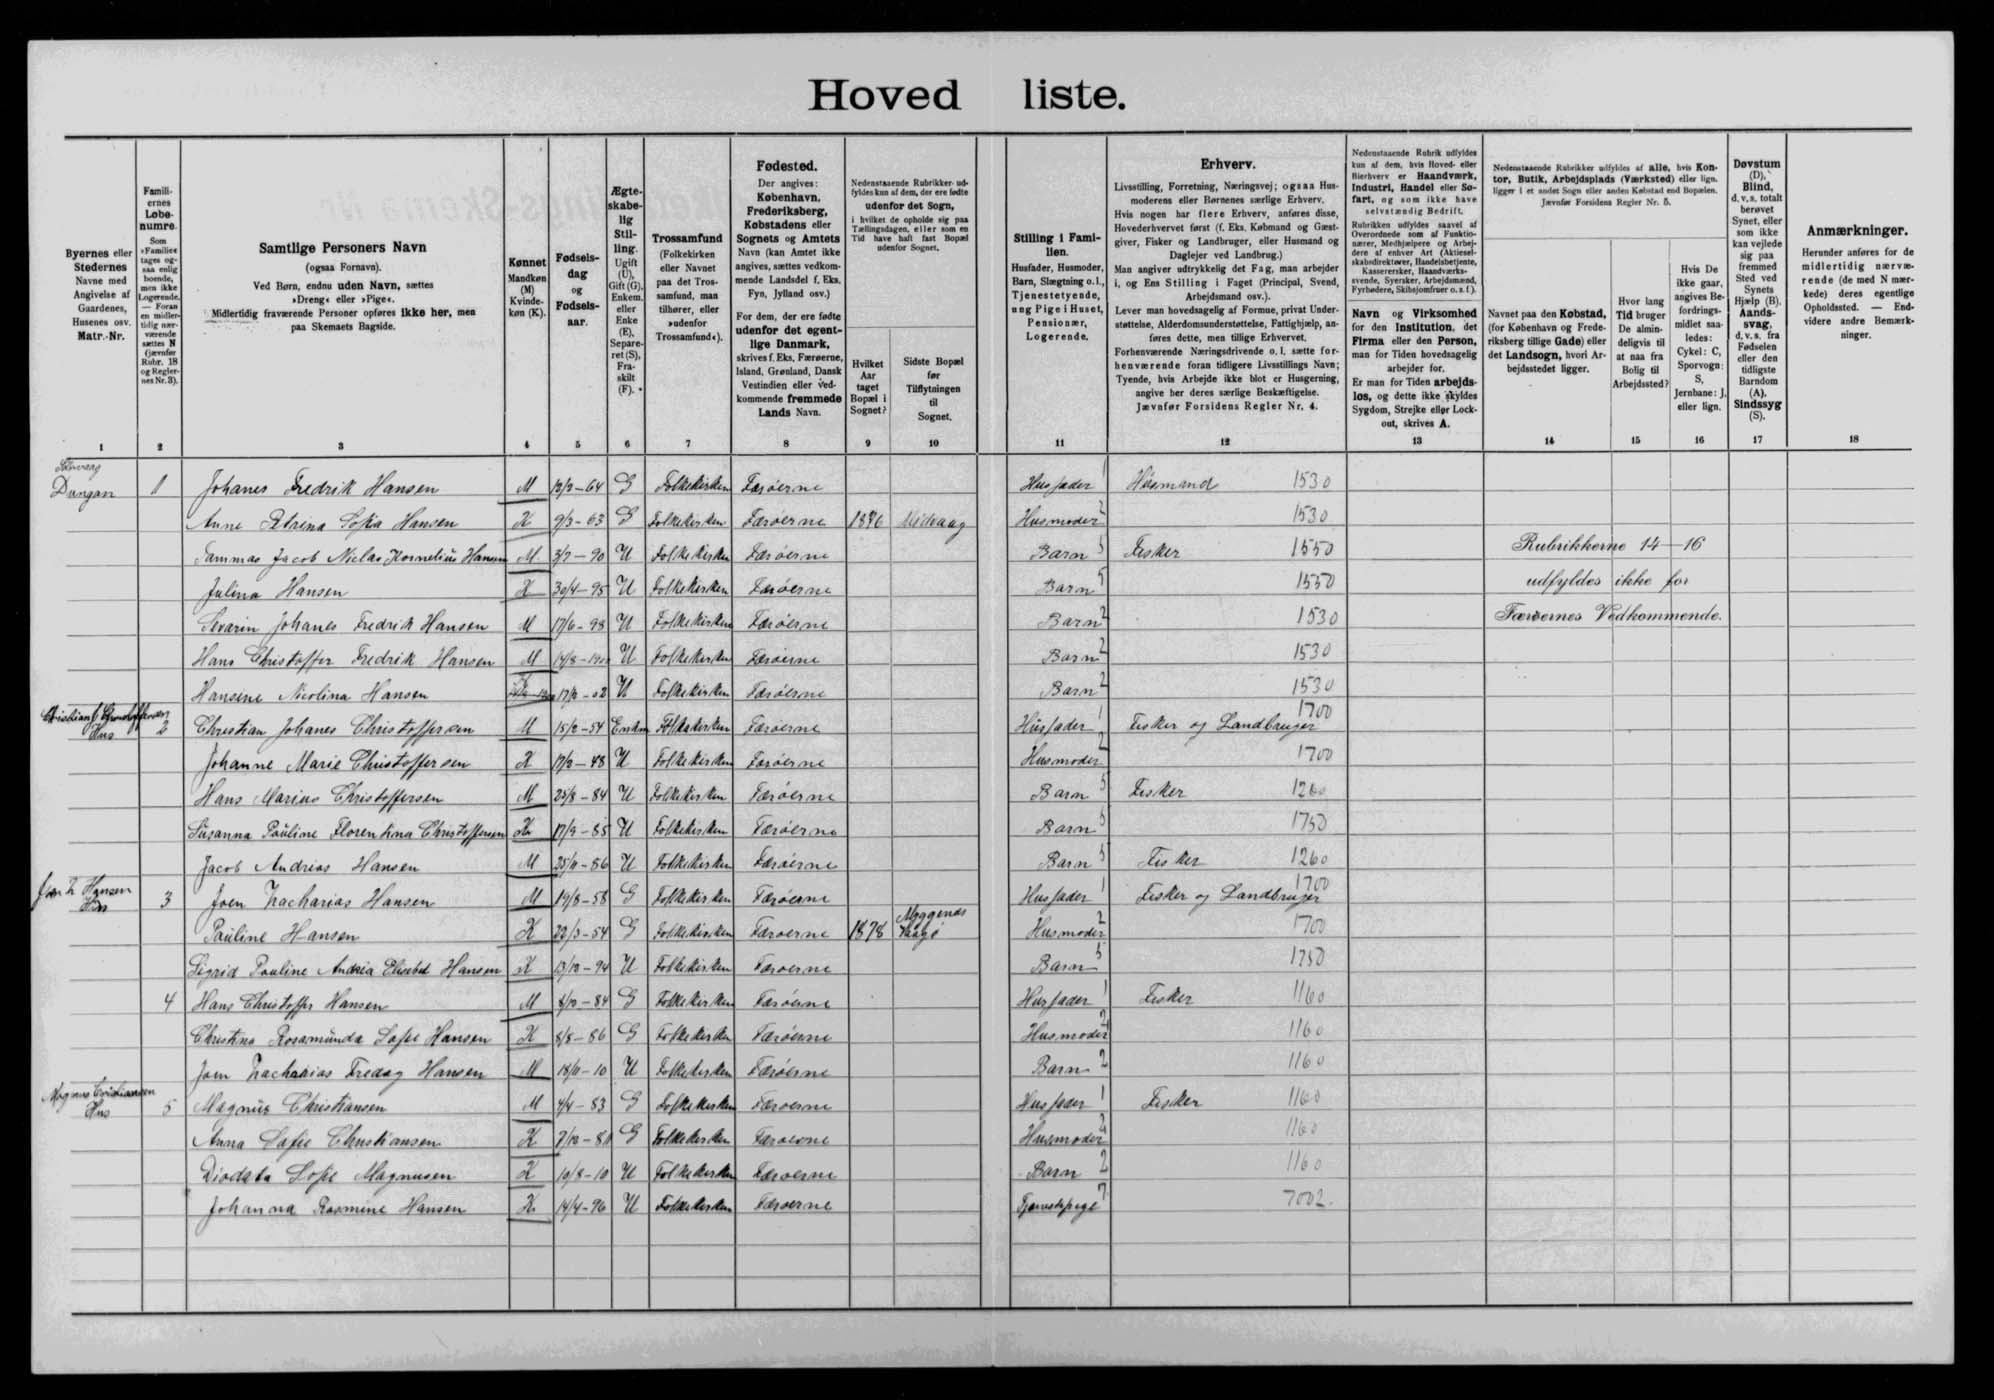 Hoved liste.
Byernes eller Stedernes Navne med Angivelse af Gaardenes, Husenes osv. Matr.-Nr.
Familiernes Løbenumre.
Som »Familie« tages ogsaa enlig boende, men ikke Logerende. — Foran en midlertidig nærværende sættes N (jævnfør Rubr. 18 og Reglernes Nr. 3).
Samtlige Personers Navn
(ogsaa Fornavn).
Ved Børn, endnu uden Navn, sættes »Dreng« eller »Pige«.
Midlertidig fraværende Personer opføres ikke her, men paa Skemaets Bagside.
Kønnet
Mandkøn (M) Kvindekøn (K).
Fødselsdag og Fødselsaar.
Ægteskabelig Stilling. Ugift (U), Gift (G), Enkem. eller Enke (E), Separeret (S), Fraskilt (F).
Trossamfund
(Folkekirken eller Navnet paa det Trossamfund, man tilhører, eller »udenfor Trossamfund«).
Fødested.
Der angives: København, Frederiksberg, Købstadens eller Sognets og Amtets Navn (kan Amtet ikke angives, sættes vedkommende Landsdel f. Eks. Fyn, Jylland osv.)
For dem, der ere fødte udenfor det egentlige Danmark, skrives f. Eks. Færøerne, Island, Grønland, Dansk Vestindien eller vedkommende fremmede Lands Navn.
Nedenstaaende Rubrikker udfyldes kun af dem, der ere fødte udenfor det Sogn, i hvilket de opholde sig paa Tællingsdagen, eller som en Tid have haft fast Bopæl udenfor Sognet.
Hvilket Aar taget Bopæl i Sognet?
Sidste Bopæl før Tilflytningen til Sognet.
Stilling i Familien.
Husfader, Husmoder, Barn, Slægtning o. l., Tjenestetyende, ung Pige i Huset, Pensionær, Logerende.
Erhverv.
Livsstilling, Forretning, Næringsvej; ogsaa Husmoderens eller Børnenes særlige Erhverv.
Hvis nogen har flere Erhverv, anføres disse, Hovederhvervet først (f. Eks. Købmand og Gæstgiver, Fisker og Landbruger, eller Husmand og Daglejer ved Landbrug.)
Man angiver udtrykkelig det Fag, man arbejder i, og Ens Stilling i Faget (Principal, Svend, Arbejdsmand osv.).
Lever man hovedsagelig af Formue, privat Understøttelse, Alderdomsunderstøttelse, Fattighjælp, anføres dette, men tillige Erhvervet.
Forhenværende Næringsdrivende o. l. sætte forhenværende foran tidligere Livsstillings Navn; Tyende, hvis Arbejde ikke blot er Husgerning, angive her deres særlige Beskæftigelse.
Jævnfør Forsidens Regler Nr. 4.
Nedenstaaende Rubrik udfyldes kun af dem, hvis Hoved- eller Bierhverv er Haandværk, Industri, Handel eller Søfart, og som ikke have selvstændig Bedrift.
Rubrikken udfyldes saavel af Overordnede som af Funktionærer, Medhjælpere og Arbejdere af enhver Art (Aktieselskabsdirektører, Handelsbetjente, Kasserersker, Haandværkssvende, Syersker, Arbejdsmænd, Fyrbødere, Skibsjomfruer o. s. f.).
Navn og Virksomhed for den Institution, det Firma eller den Person, man for Tiden hovedsagelig arbejder for.
Er man for Tiden arbejdsløs, og dette ikke skyldes Sygdom, Strejke eller Lockout, skrives A.
Nedenstaaende Rubrikker udfyldes af alle, hvis Kontor, Butik, Arbejdsplads (Værksted) eller lign. ligger i et andet Sogn eller anden Købstad end Bopælen.
Jævnfør Forsidens Regler Nr. 5.
Navnet paa den Købstad, (for København og Frederiksberg tillige Gade) eller det Landsogn, hvori Arbejdsstedet ligger.
Hvor lang Tid bruger De almindeligvis til at naa fra Bolig til Arbejdssted?
Hvis De ikke gaar, angives Befordringsmidlet saaledes: Cykel: C, Sporvogn: S, Jernbane: J. eller lign.
Døvstum (D), Blind, d. v. s. totalt berøvet Synet, eller som ikke kan vejlede sig paa fremmed Sted ved Synets Hjælp (B). Aandssvag, d. v. s. fra Fødselen eller den tidligste Barndom (A). Sindssyg (S).
Anmærkninger.
Herunder anføres for de midlertidig nærværende (de med N mærkede) deres egentlige Opholdssted. — Endvidere andre Bemærkninger.
1 2 3 4 5 6 7 8 9 10 11 12 13 14 15 16 17 18
Dungan 1 Johanes Fredrik Hansen M 12/2-64 G Folkekirken Færøerne Husfader 1 Húsmand 1530
Anne Petrina Sofia Hansen K 9/3-63 G Folkekirken Færøerne 1876 Midvaag Husmoder 2 1530
Tammas Jacob Niclas Kornelius Hansen M 3/7-90 U Folkekirken Færøerne Barn 5 Fisker 1550 Rubrikkerne 14-16
Julina Hansen K 30/4-95 U Folkekirken Færøerne Barn 5 1550 udfyldes ikke for
Severin Johanes Fredrik Hansen M 17/6-98 U Folkekirken Færøerne Barn 2 1530 Færøernes Vedkommende.
Hans Christoffer Fredrik Hansen M 14/8-1900 U Folkekirken Færøerne Barn 2 1530
Hansene Nicolina Hansen 17/2-02 U Folkekirken Færøerne Barn 2 1530
Christian J Christoffersen Hus 2 Christian Johanes Christoffersen M 15/2-54 Enkm Folkekirken Færøerne Húsfader 1 Fisker og Landbruger 1700
Johanne Marie Christoffersen K 17/2-48 U Folkekirken Færøerne Husmoder 2 1700
Hans Marius Christoffersen M 25/8-84 U Folkekirken Færøerne Barn 5 Fisker 1260
Susanna Pauline Florentina Christoffersen K 17/9-85 U Folkekirken Færøerne Barn 5 1750
Jacob Andrias Hansen M 25/11-86 U Folkekirken Færøerne Barn 5 Fisker 1260
Joen Z Hansen Hus 3 Joen Zacharias Hansen M 19/8-58 G Folkekirken Færøerne Husfader 1 Fisker og Landbruger 1700
Pauline Hansen K 22/3-54 G Folkekirken Færøerne 1878 Myggenæs Vaagø Husmoder 2 1700
Sigrid Pauline Andrea Elisebet Hansen K 13/12-94 U Folkekirken Færøerne Barn 5 1750
4 Hans Christoffer Hansen M 8/12-84 G Folkekirken Færøerne Husfader 1 Fisker 1160
Christina Rosamunda Sofie Hansen K 8/8-86 G Folkekirken Færøerne Husmoder 2 1160
Joen Zacharias Fredag Hansen M 18/11-10 U Folkekirken Færøerne Barn 2 1160
Magnus Cristiansen Hus 5 Magnus Christiansen M 4/4-83 G Folkekirken Færøerne Husfader 1 Fisker 1160
Anna Sofie Christiansen K 7/12-81 G Folkekirken Færøerne Husmoder 2 1160
Diodata Sofie Magnusen K 10/8-10 U Folkekirken Færøerne Barn 2 1160
Johanna Rasmine Hansen K 14/4-96 U Folkekirken Færøerne Tjenestepige 7 7002.